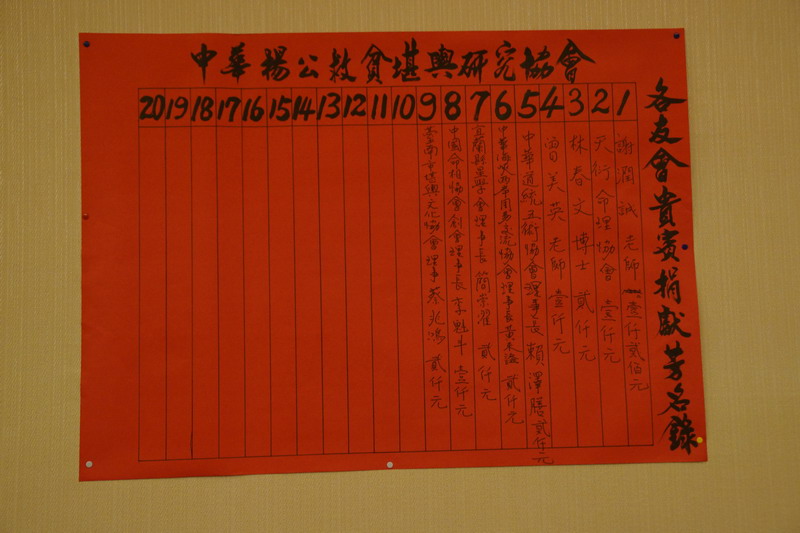 中華楊公救貧堪輿研究協會
各友會貴賓捐獻芳名錄
1 謝潤誠 老師 壹仟貳佰元
2 天衍命理協會 壹仟元
3 林春文 博士 貳仟元
4 曾美英 老師 壹仟元
5 中華道統五術協會理事長 賴澤膳 貳仟元
6 中華海峽兩岸周易交流協會理事長 黃 貳仟元
7 宜蘭縣星學會理事長 簡崇濯 貳仟元
8 中國命相協會創會理事長 李魁斗 壹仟元
9 臺南市堪輿文化協會理事 蔡兆鴻 貳仟元
10
11
12
13
14
15
16
17
18
19
20